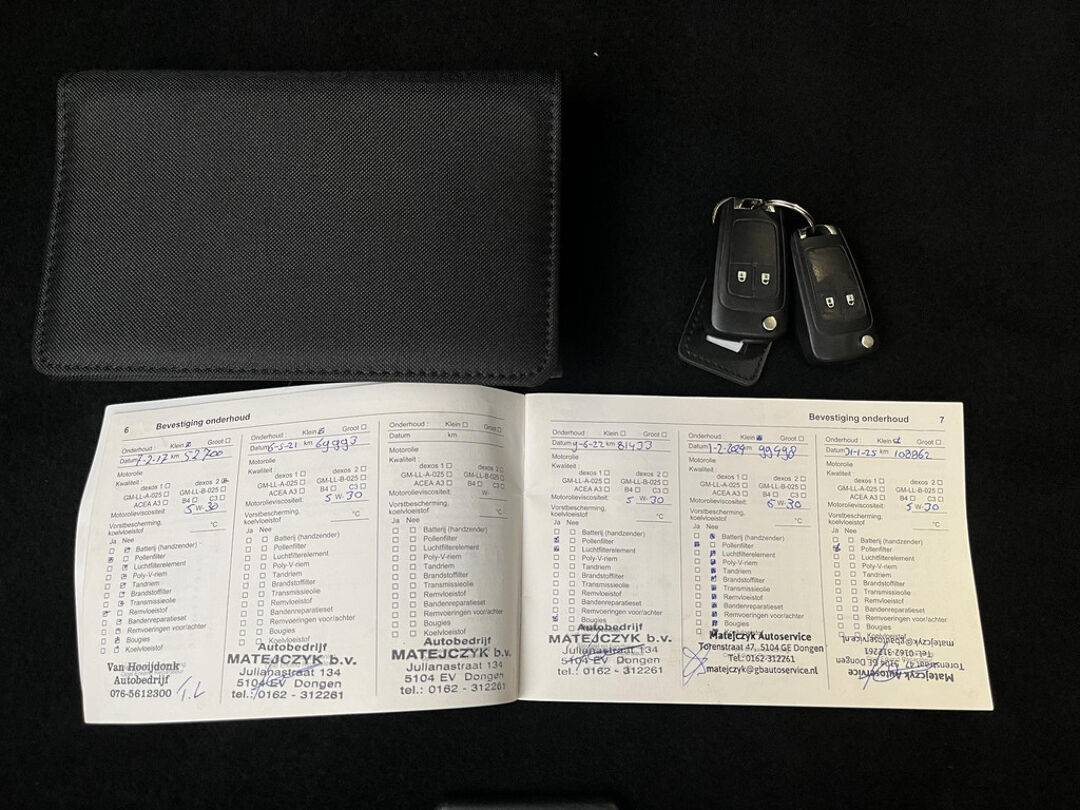 6 Bevestiging onderhoud
Onderhoud : Klein Groot
Datum 7-2-17 km 52700
Motorolie
Kwaliteit :
dexos 1 dexos 2
GM-LL-A-025 GM-LL-B-025
ACEA A3 B4 C3
Motorolieviscositeit: 5 W-30
Vorstbescherming, koelvloeistof °C
Ja Nee
Batterij (handzender)
Pollenfilter
Luchtfilterelement
Poly-V-riem
Tandriem
Brandstoffilter
Transmissieolie
Remvloeistof
Bandenreparatieset
Remvoeringen voor/achter
Bougies
Koelvloeistof
Van Hooijdonk
Autobedrijf
076-5612300
T.L
Onderhoud : Klein Groot
Datum 6-5-21 km 69993
Motorolie
Kwaliteit :
dexos 1 dexos 2
GM-LL-A-025 GM-LL-B-025
ACEA A3 B4 C3
Motorolieviscositeit: 5 W-30
Vorstbescherming,
koelvloeistof °C
Ja Nee
Batterij (handzender)
Pollenfilter
Luchtfilterelement
Poly-V-riem
Tandriem
Brandstoffilter
Transmissieolie
Remvloeistof
Bandenreparatieset
Remvoeringen voor/achter
Bougies
Koelvloeistof
Autobedrijf
MATEJCZYK b.v.
Julianastraat 134
5104 EV Dongen
tel.: 0162 - 312261
Onderhoud : Klein Groot
Datum km
Motorolie
Kwaliteit :
dexos 1 dexos 2
GM-LL-A-025 GM-LL-B-025
ACEA A3 B4 C3
Motorolieviscositeit: W-
Vorstbescherming,
koelvloeistof °C
Ja Nee
Batterij (handzender)
Pollenfilter
Luchtfilterelement
Poly-V-riem
Tandriem
Brandstoffilter
Transmissieolie
Remvloeistof
Bandenreparatieset
Remvoeringen voor/achter
Bougies
Koelvloeistof
Autobedrijf
MATEJCZYK b.v.
Julianastraat 134
5104 EV Dongen
tel.: 0162 - 312261
Bevestiging onderhoud 7
Onderhoud : Klein Groot
Datum 9-6-22 km 81433
Motorolie
Kwaliteit :
dexos 1 dexos 2
GM-LL-A-025 GM-LL-B-025
ACEA A3 B4 C3
Motorolieviscositeit: 5 W-30
Vorstbescherming,
koelvloeistof °C
Ja Nee
Batterij (handzender)
Pollenfilter
Luchtfilterelement
Poly-V-riem
Tandriem
Brandstoffilter
Transmissieolie
Remvloeistof
Bandenreparatieset
Remvoeringen voor/achter
Bougies
Autobedrijf
MATEJCZYK b.v.
Julianastraat 134
5104 EV Dongen
tel.: 0162 - 312261
Onderhoud : Klein Groot
Datum 1-2-2024 km 99498
Motorolie
Kwaliteit :
dexos 1 dexos 2
GM-LL-A-025 GM-LL-B-025
ACEA A3 B4 C3
Motorolieviscositeit: 5 W-30
Vorstbescherming,
koelvloeistof °C
Ja Nee
Batterij (handzender)
Pollenfilter
Luchtfilterelement
Poly-V-riem
Tandriem
Brandstoffilter
Transmissieolie
Remvloeistof
Bandenreparatieset
Remvoeringen voor/achter
Bougies
Matejczyk Autoservice
Torenstraat 47, 5104 GE Dongen
Tel.: 0162-312261
matejczyk@gbautoservice.nl
Onderhoud : Klein Groot
Datum 31-1-25 km 108862
Motorolie
Kwaliteit :
dexos 1 dexos 2
GM-LL-A-025 GM-LL-B-025
ACEA A3 B4 C3
Motorolieviscositeit: 5 W-30
Vorstbescherming,
koelvloeistof °C
Ja Nee
Batterij (handzender)
Pollenfilter
Luchtfilterelement
Poly-V-riem
Tandriem
Brandstoffilter
Transmissieolie
Remvloeistof
Bandenreparatieset
Remvoeringen voor/achter
Bougies
Koelvloeistof
Matejczyk Autoservice
Torenstraat 47, 5104 GE Dongen
Tel.: 0162-312261
matejczyk@gbautoservice.nl